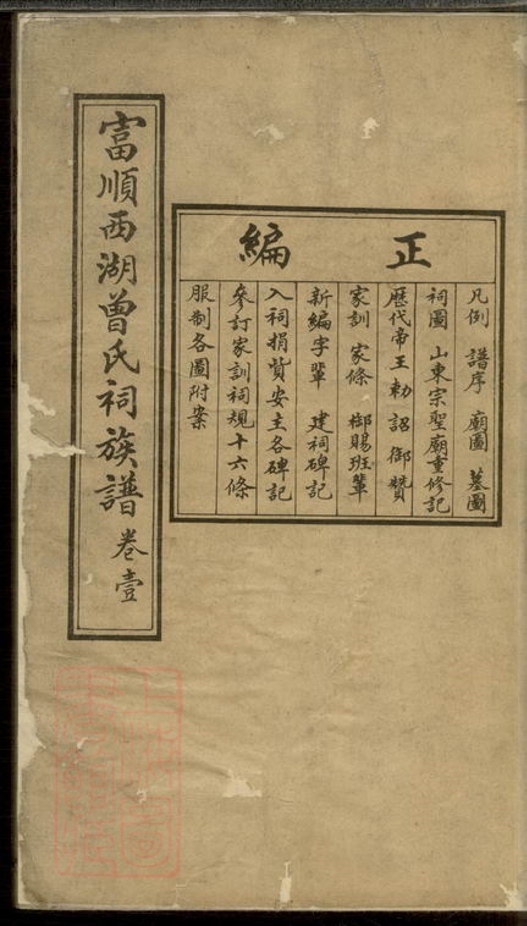 富順西湖曾氏祠族譜 卷壹
正編
凡例 譜序 廟圖 墓圖
祠圖 山東宗聖廟重修記
歷代帝王勅 詔 御贊
家訓 家條 御賜班輩
新編字輩 建祠碑記
入祠捐貲安主各碑記
參訂家訓祠規十六條
服制各圖附案